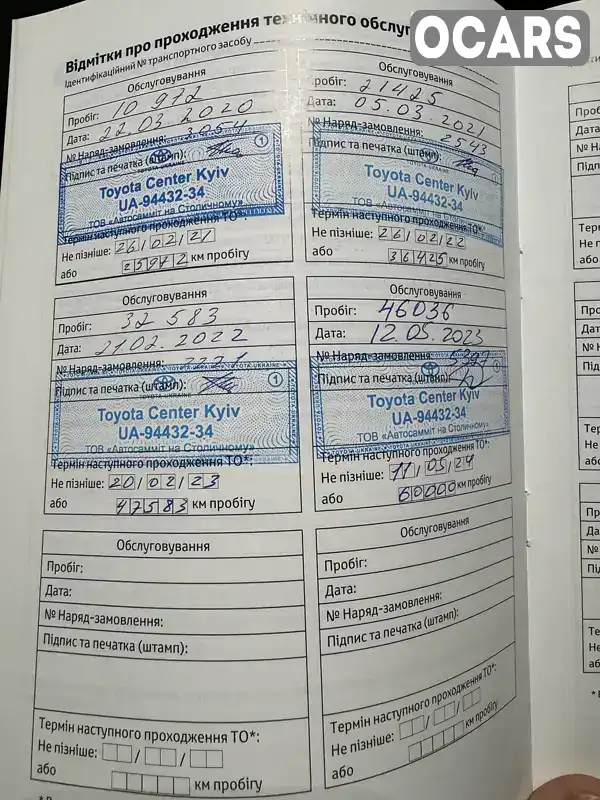 OCARS
Відмітки про проходження технічного обслуг
Ідентифікаційний № транспортного засобу
Обслуговування
Пробіг: 10 972
Дата: 22.03.2020
№ Наряд-замовлення: 3054
Підпис та печатка (штамп):
Toyota Center Kyiv
UA-94432-34
ТОВ «Автосамміт на Столичному»
Термін наступного проходження ТО*:
Не пізніше: 26/02/21
або 25972 км пробігу
Обслуговування
Пробіг: 21425
Дата: 05.03.2021
№ Наряд-замовлення: 2543
Підпис та печатка (штамп):
Toyota Center Kyiv
UA-94432-34
ТОВ «Автосамміт на Столичному»
Термін наступного проходження ТО*:
Не пізніше: 26/02/22
або 36425 км пробігу
Обслуговування
Пробіг: 32 583
Дата: 21.02.2022
№ Наряд-замовлення:
Підпис та печатка (штамп):
Toyota Center Kyiv
UA-94432-34
ТОВ «Автосамміт на Столичному»
Термін наступного проходження ТО*:
Не пізніше: 20/02/23
або 47583 км пробігу
Обслуговування
Пробіг: 46036
Дата: 12.05.2023
№ Наряд-замовлення:
Підпис та печатка (штамп):
Toyota Center Kyiv
UA-94432-34
ТОВ «Автосамміт на Столичному»
Термін наступного проходження ТО*:
Не пізніше: 11/05/24
або 60000 км пробігу
Обслуговування
Пробіг:
Дата:
№ Наряд-замовлення:
Підпис та печатка (штамп):
Термін наступного проходження ТО*:
Не пізніше: / /
або км пробігу
Обслуговування
Пробіг:
Дата:
№ Наряд-замовлення:
Підпис та печатка (штамп):
Термін наступного проходження ТО*:
Не пізніше: / /
або км пробігу